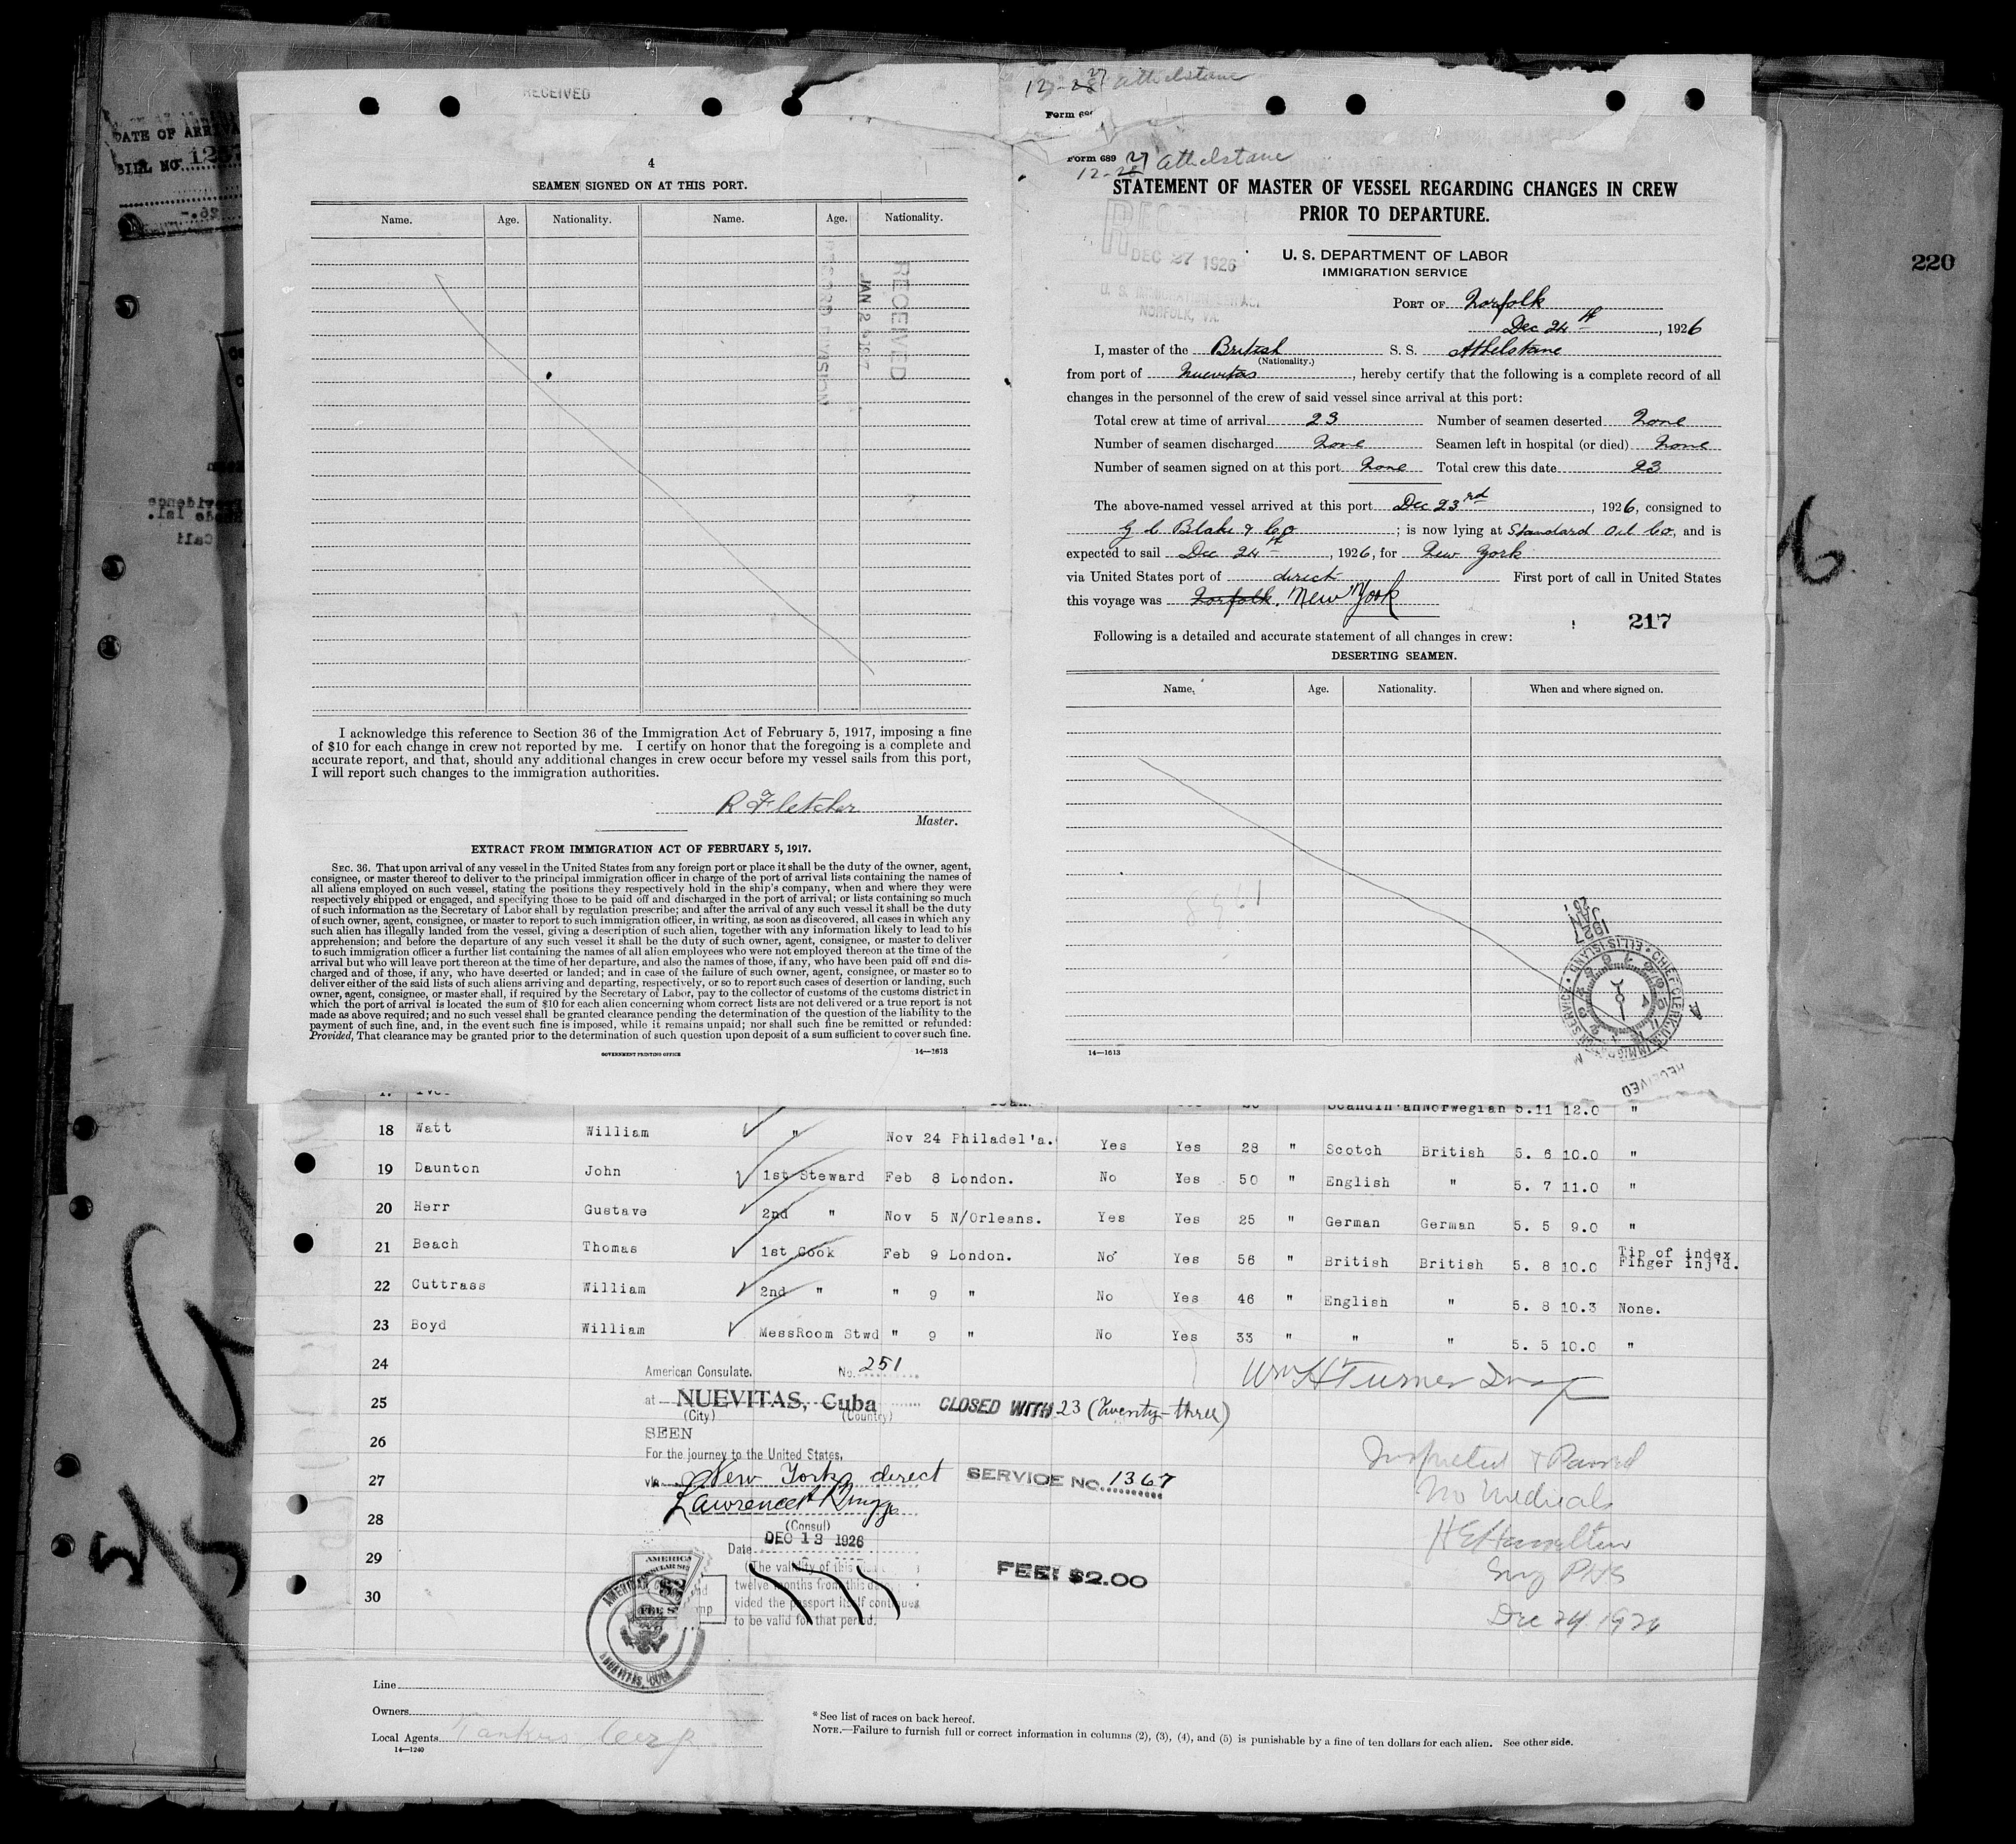 DATE OF ARRIVA
BILL NO. 12
220
RECEIVED
12-27 Athelstane
Form 689
4
SEAMEN SIGNED ON AT THIS PORT.
Name. Age. Nationality. Name. Age. Nationality.
RECEIVED
JAN 2 1927
I acknowledge this reference to Section 36 of the Immigration Act of February 5, 1917, imposing a fine
of $10 for each change in crew not reported by me. I certify on honor that the foregoing is a complete and
accurate report, and that, should any additional changes in crew occur before my vessel sails from this port,
I will report such changes to the immigration authorities.
R Fletcher
Master.
EXTRACT FROM IMMIGRATION ACT OF FEBRUARY 5, 1917.
SEC. 36. That upon arrival of any vessel in the United States from any foreign port or place it shall be the duty of the owner, agent,
consignee, or master thereof to deliver to the principal immigration officer in charge of the port of arrival lists containing the names of
all aliens employed on such vessel, stating the positions they respectively hold in the ship's company, when and where they were
respectively shipped or engaged, and specifying those to be paid off and discharged in the port of arrival; or lists containing so much
of such information as the Secretary of Labor shall by regulation prescribe; and after the arrival of any such vessel it shall be the duty
of such owner, agent, consignee, or master to report to such immigration officer, in writing, as soon as discovered, all cases in which any
such alien has illegally landed from the vessel, giving a description of such alien, together with any information likely to lead to his
apprehension; and before the departure of any such vessel it shall be the duty of such owner, agent, consignee, or master to deliver
to such immigration officer a further list containing the names of all alien employees who were not employed thereon at the time of the
arrival but who will leave port thereon at the time of her departure, and also the names of those, if any, who have been paid off and dis-
charged and of those, if any, who have deserted or landed; and in case of the failure of such owner, agent, consignee, or master so to
deliver either of the said lists of such aliens arriving and departing, respectively, or so to report such cases of desertion or landing, such
owner, agent, consignee, or master shall, if required by the Secretary of Labor, pay to the collector of customs of the customs district in
which the port of arrival is located the sum of $10 for each alien concerning whom correct lists are not delivered or a true report is not
made as above required; and no such vessel shall be granted clearance pending the determination of the question of the liability to the
payment of such fine, and, in the event such fine is imposed, while it remains unpaid; nor shall such fine be remitted or refunded:
Provided, That clearance may be granted prior to the determination of such question upon deposit of a sum sufficient to cover such fine.
GOVERNMENT PRINTING OFFICE 14—1613
Form 689 27 Athelstane
12-28
STATEMENT OF MASTER OF VESSEL REGARDING CHANGES IN CREW
PRIOR TO DEPARTURE.
DEC 27 1926
NORFOLK, VA.
U. S. DEPARTMENT OF LABOR
IMMIGRATION SERVICE
PORT OF Norfolk
Dec 24th, 1926
I, master of the British S. S. Athelstane
(Nationality.)
from port of Nuevitas, hereby certify that the following is a complete record of all
changes in the personnel of the crew of said vessel since arrival at this port:
Total crew at time of arrival 23 Number of seamen deserted None
Number of seamen discharged None Seamen left in hospital (or died) None
Number of seamen signed on at this port None Total crew this date 23
The above-named vessel arrived at this port Dec 23rd, 1926, consigned to
G C Blake & Co; is now lying at Standard Oil Co, and is
expected to sail Dec 24th, 1926, for New York
via United States port of direct First port of call in United States
this voyage was Norfolk. New York
217
Following is a detailed and accurate statement of all changes in crew:
DESERTING SEAMEN.
Name. Age. Nationality. When and where signed on.
1927 JAN 25
CHIEF CLERK, U.S. IMMIGRATION SERVICE · ELLIS ISLAND
RECEIVED
14—1613
Scandin'an Norwegian 5.11 12.0 "
18 Watt William " Nov 24 Philadel'a. Yes Yes 28 " Scotch British 5. 6 10.0 "
19 Daunton John 1st Steward Feb 8 London. No Yes 50 " English " 5. 7 11.0 "
20 Herr Gustave 2nd " Nov 5 N/Orleans. Yes Yes 25 " German German 5. 5 9.0 "
21 Beach Thomas 1st Cook Feb 9 London. No Yes 56 " British British 5. 8 10.0 Tip of index
Finger inj'd.
22 Cuttrass William 2nd " " 9 " No Yes 46 " English " 5. 8 10.3 None.
23 Boyd William MessRoom Stwd " 9 " No Yes 33 " " " 5. 5 10.0 "
24
American Consulate. No. 251
Wm H Turner Insp
25
at NUEVITAS, Cuba CLOSED WITH 23 (Twenty-three)
(City) (Country)
26
SEEN
For the journey to the United States,
27
via New York, direct SERVICE NO. 1367
Inspected & Passed
No Medicals
28
(Consul)
H E Hamilton
Surg PHS
Dec 24. 1926
29
Date DEC 13 1926
(The validity of this
FEE: $2.00
30
twelve months from this
vided the passport itself continues
to be valid for that period.
NUEVITAS, CUBA
Line
Owners
Local Agents Tankers Corp
14—1240
* See list of races on back hereof.
NOTE.—Failure to furnish full or correct information in columns (2), (3), (4), and (5) is punishable by a fine of ten dollars for each alien. See other side.